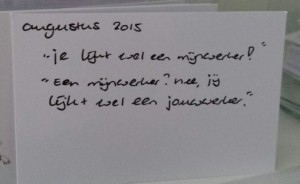 augustus 2015
"je lijkt wel een mijnwerker!"
"Een mijnwerker? nee, jij
lijkt wel een jouwwerker."